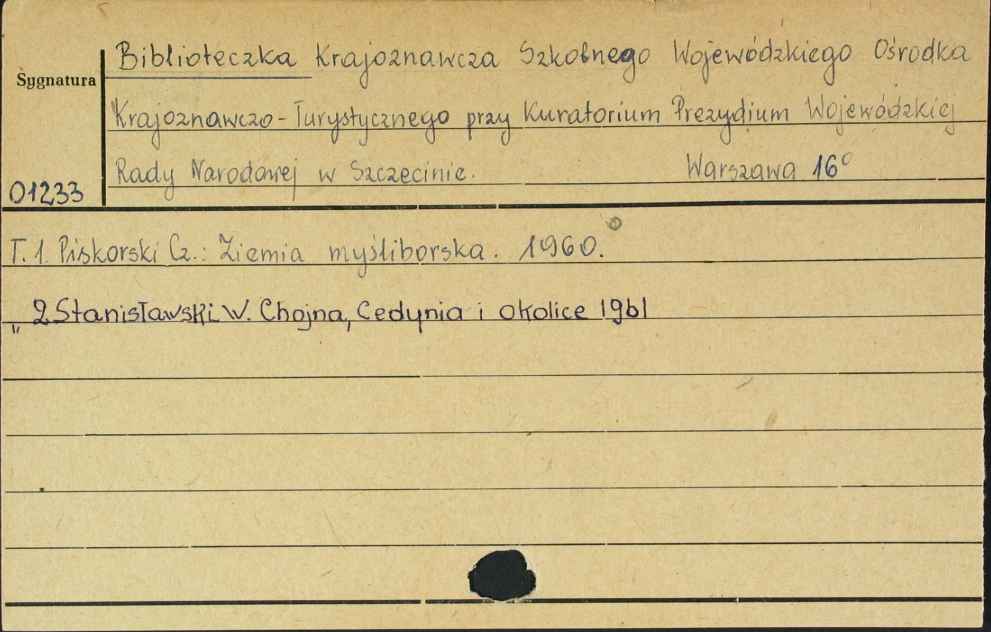 Biblioteczka Krajoznawcza Szkolnego Wojewódzkiego Ośrodka
Sygnatura
Krajoznawczo-Turystycznego przy Kuratorium Prezydium Wojewódzkiej
Rady Narodowej w Szczecinie. Warszawa 16°
01233
T. 1. Piskorski Cz.: Ziemia myśliborska. 1960.
„ 2 Stanisławski W. Chojna, Cedynia i okolice 1961